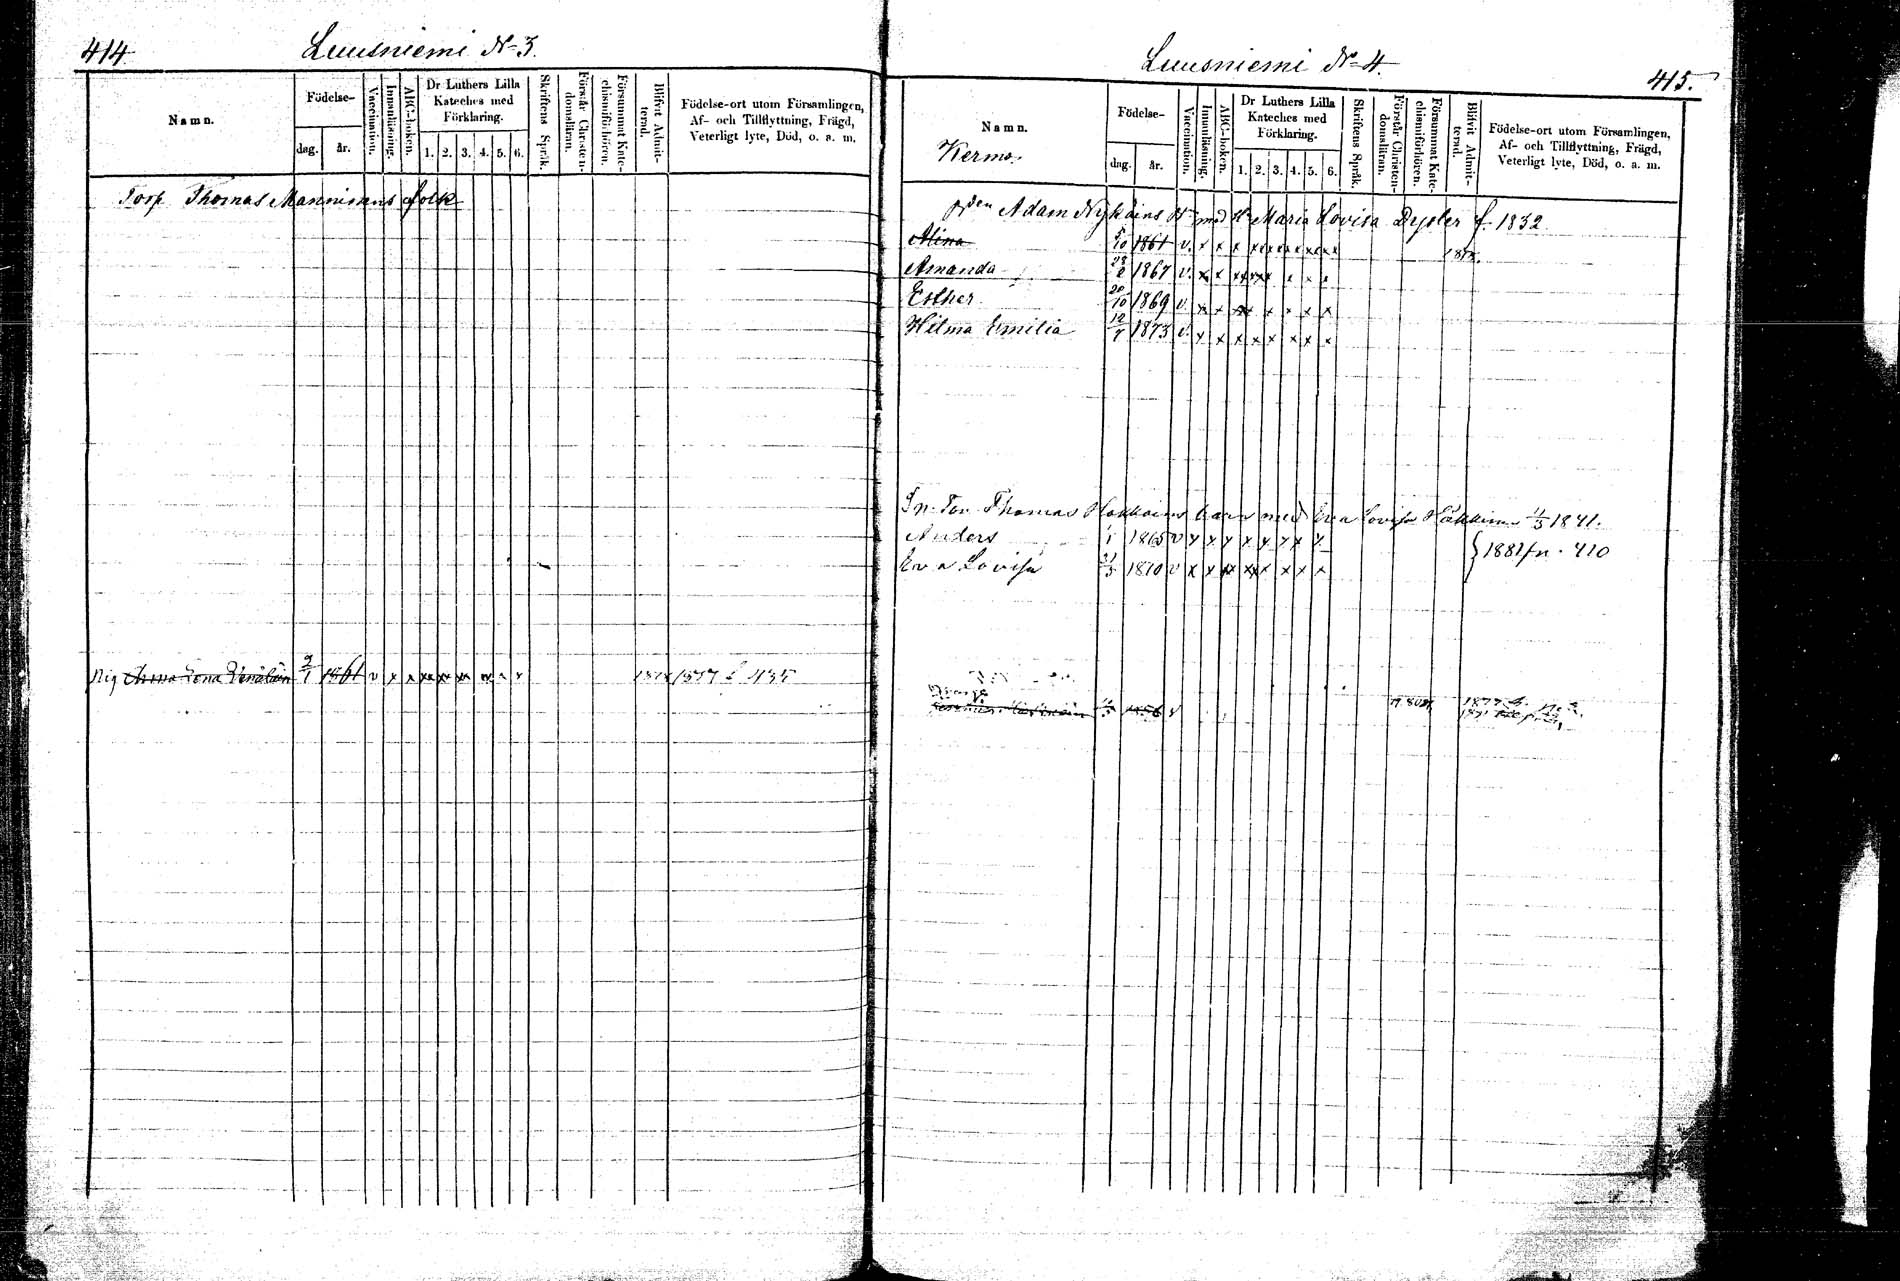 414
Luusniemi No 3.
Namn.
Födelse-
dag.
år.
Vaccination.
Innanläsning.
ABC-boken.
Dr Luthers Lilla
Kateches med
Förklaring.
1. 2. 3. 4. 5. 6.
Skriftens Språk.
Förstår Christen-
domsläran.
Försummat Kate-
chismiförhören.
Blifvit Admit-
terad.
Födelse-ort utom Församlingen,
Af- och Tillflyttning, Frägd,
Veterligt lyte, Död, o. a. m.
Torp Thomas Manninens folk
Pig Anna Lena 1861 v x x xx xx xx x x x 1878 1877 f 435
Luusniemi No 4.
415.
Namn.
Kermo.
Födelse-
dag.
år.
Vaccination.
Innanläsning.
ABC-boken.
Dr Luthers Lilla
Kateches med
Förklaring.
1. 2. 3. 4. 5. 6.
Skriftens Språk.
Förstår Christen-
domsläran.
Försummat Kate-
chismiförhören.
Blifvit Admit-
terad.
Födelse-ort utom Församlingen,
Af- och Tillflyttning, Frägd,
Veterligt lyte, Död, o. a. m.
Adam Nykäins med Maria Lovisa f. 1832
Alina 5/10 1861 v. x x x xx xx x x x x 1878.
Amanda 23/2 1867 v. x x xx xx x x x
Esther 20/10 1869 v x x xx x x x x
Hilma Emilia 12/7 1873 v. x x x x x x x x
Thomas barn med Eva Lovisa 11/5 1841.
Anders 1865 v x x x x x x x x
Eva Lovisa 1870 v x x x x x x x x
1881 fn. 410